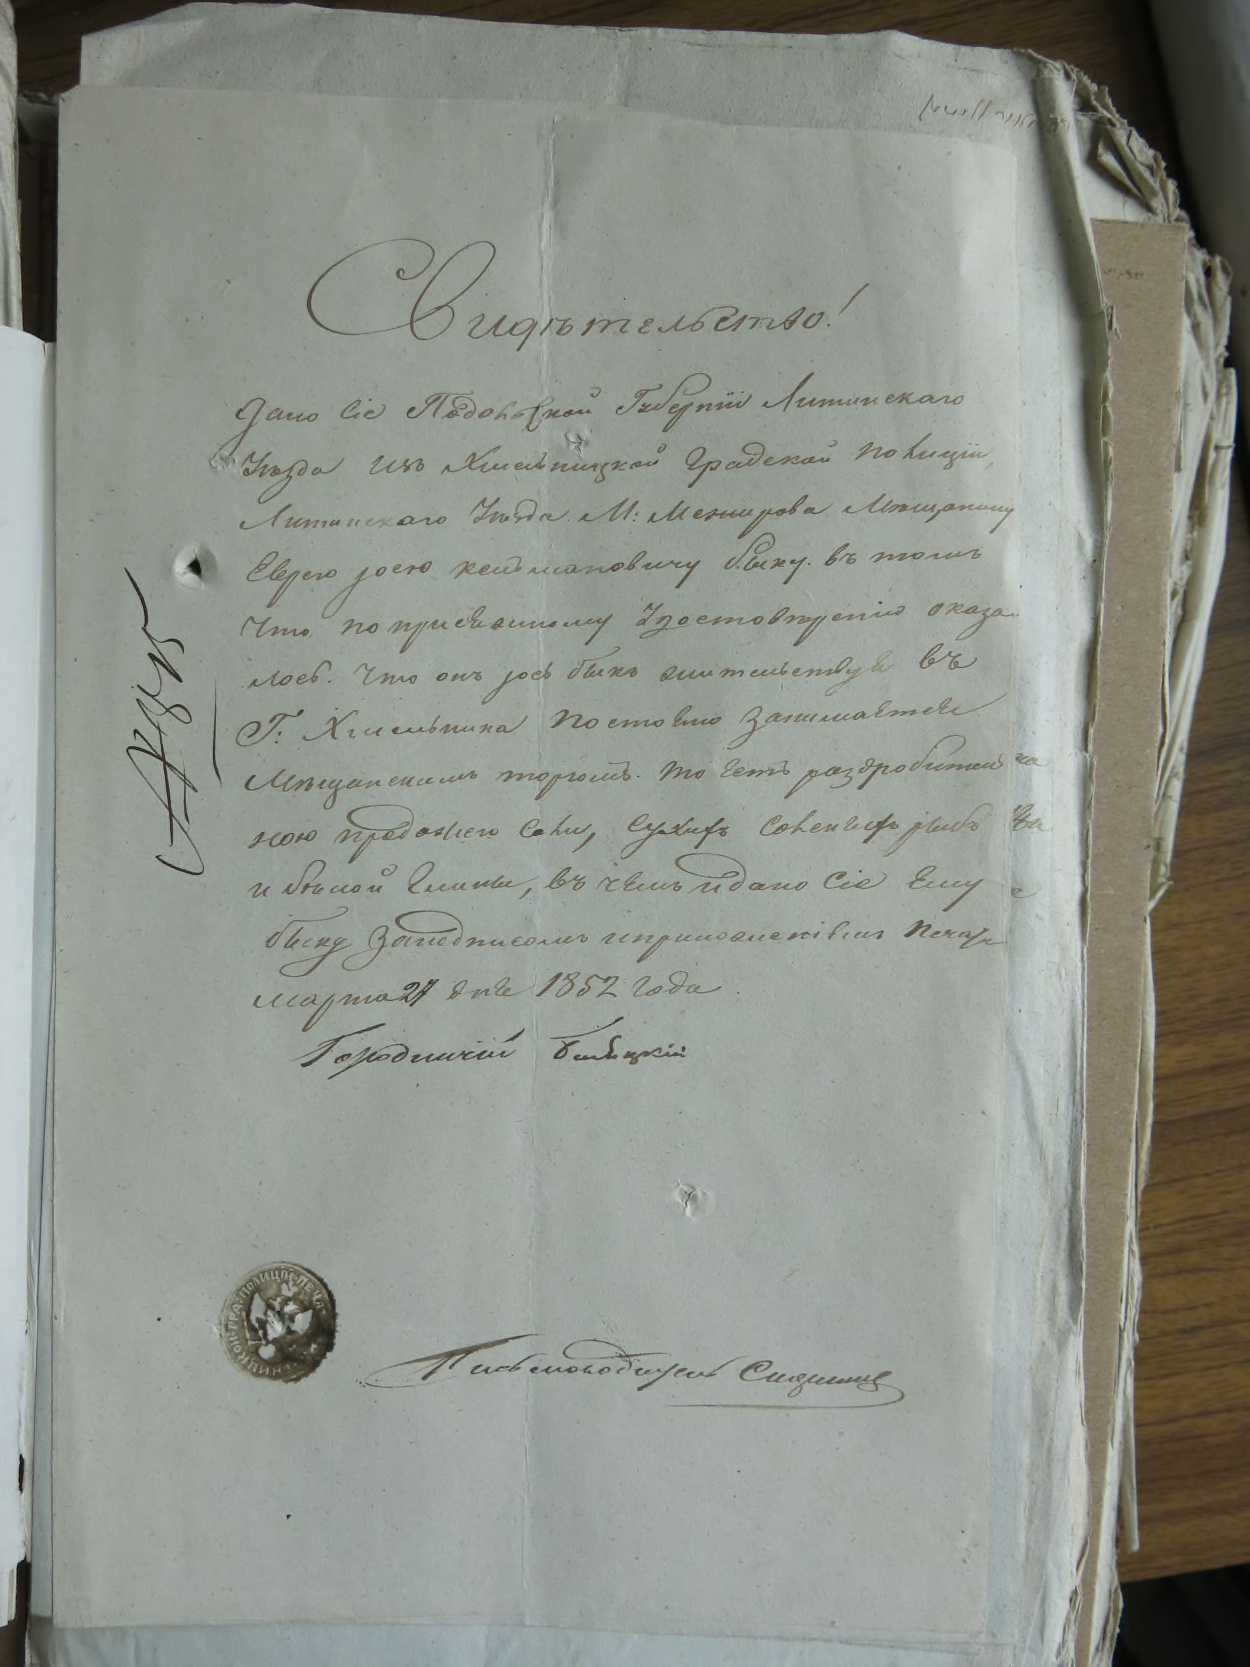 Свидѣтельство!
Дано сіе Подольской Губерніи Литинскаго
Уѣзда изъ Хмельницкой Градской Полиціи
Литинскаго Уѣзда М: Межирова Мѣщанину
Еврею Іосю Кельмановичу Быку. въ томъ
Что по присяжному Удостовѣренію оказа
лось. Что онъ Іось Быкъ жительствуя въ
Г: Хмельника постоянно занимается
Мѣщанскимъ торгомъ. то есть раздробитель
ною продажею соли, сухихъ соленыхъ рыбъ
и бѣлой глины, въ чемъ и дано сіе ему
Быку за подписомъ и приложеніемъ Печати
Марта 27 дня 1852 года
Городничій
ПОЛИЦІИ ПЕЧА
Письмоводитель